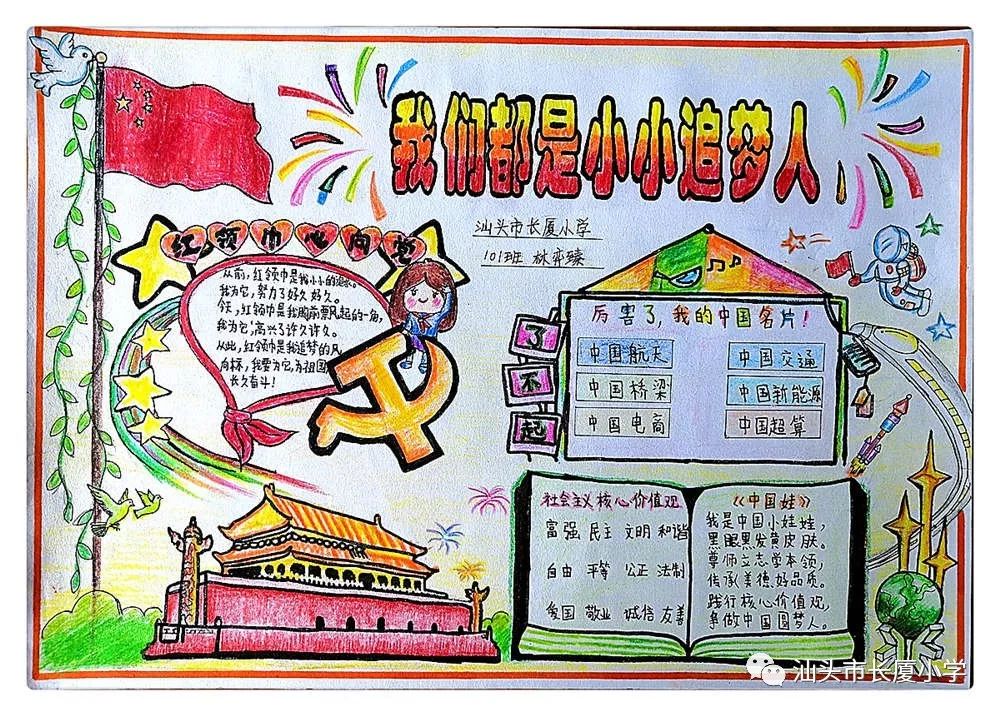 我们都是小小追梦人
汕头市长厦小学
101班 林
红领巾心向党
从前,红领巾是我小小的
我为它,努力了好久好久。
红领巾是我胸前飘起的一角,
我为它,高兴了许久许久。
从此,红领巾是我追梦的风
向标,我要为它,为祖国
长久奋斗!
了不起
厉害了,我的中国名片!
中国航天 中国交通
中国桥梁 中国新能源
中国电商 中国超算
社会主义核心价值观
富强 民主 文明 和谐
自由 平等 公正 法制
爱国 敬业 诚信 友善
《中国娃》
我是中国小娃娃,
黑眼黑发黄皮肤。
尊师立志学本领,
传承美德好品质。
践行核心价值观,
争做中国圆梦人。
汕头市长厦小学